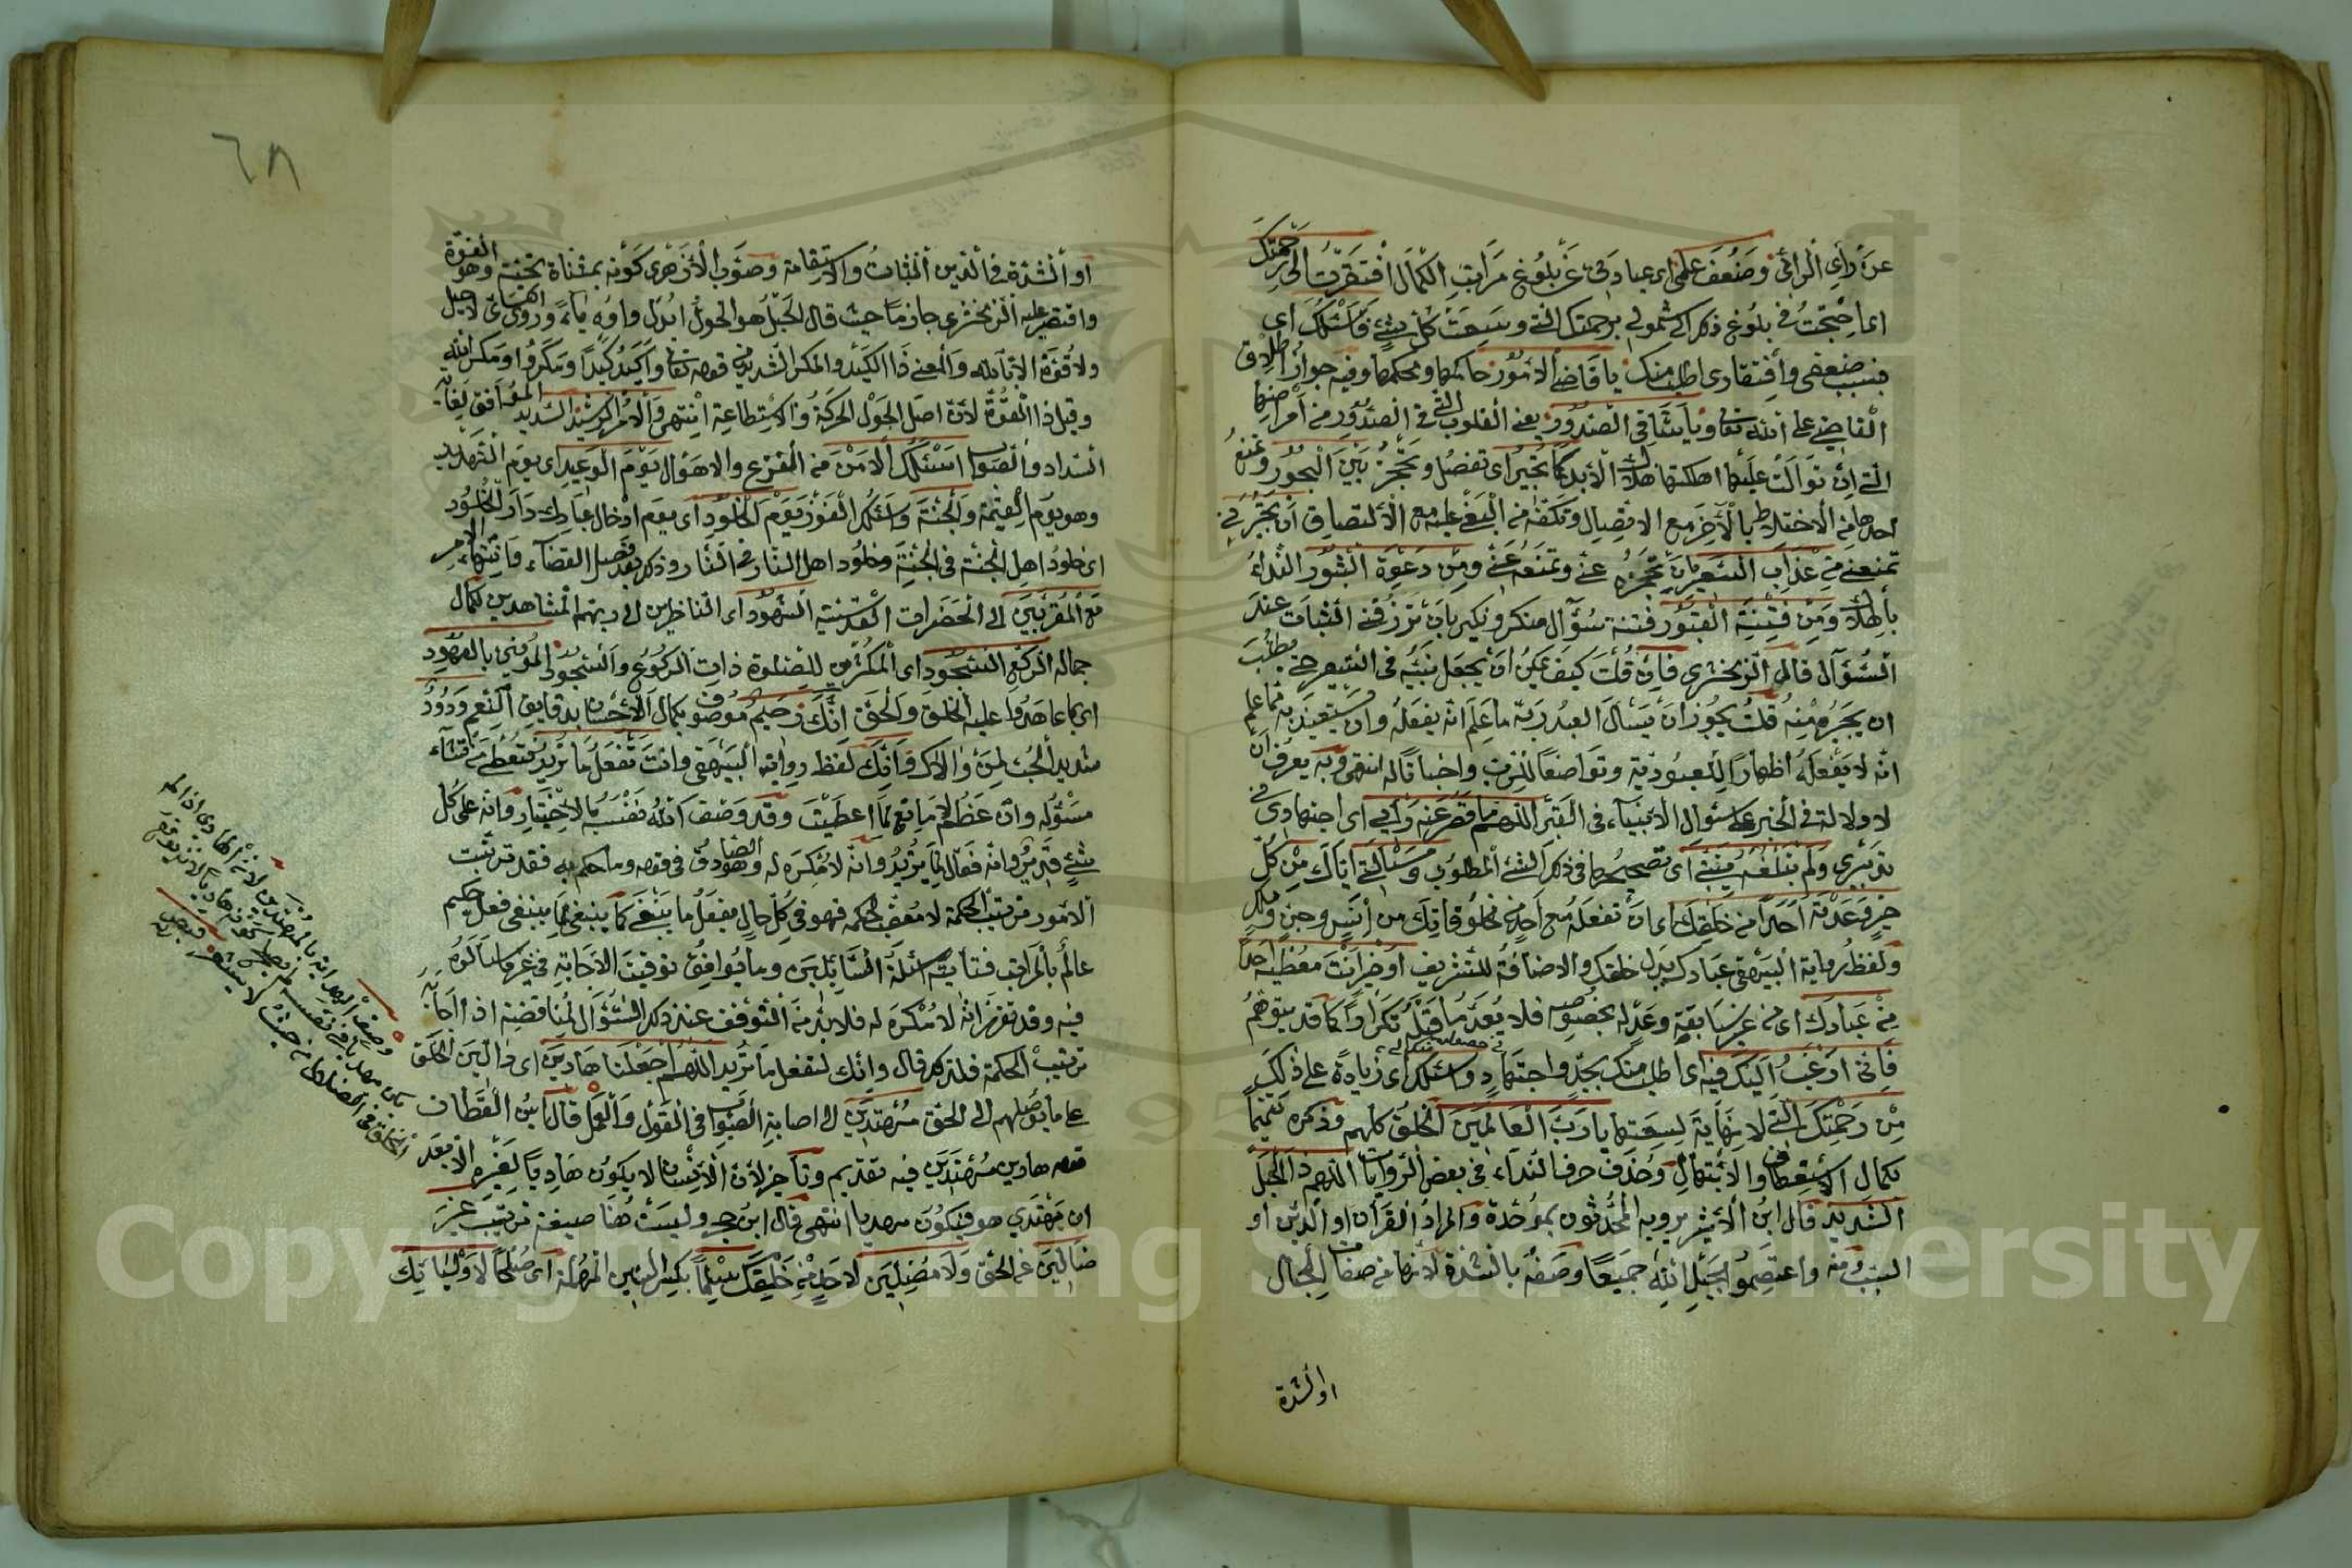 عن رأي الرائي وضعف علمي اي عبادتي عن بلوغ مراتب الكمال افتقرت الى رحمتك
اي احتجت في بلوغ ذلك الى شمولي برحمتك التي وسعت كل شيء فاسئلك اي
فبسبب ضعفي وافتقاري اطلب منك يا قاضي الامور حاكمها ومحكمها وفيه جواز اطلاق
القاضي على الله تعا ويا شافي الصدور يعني القلوب التي في الصدور من امراضها
التي ان توالت عليها اهلكتها هلاك الابد كما تجير اي تفصل وتحجز بين البحور وتمنع
احدها من الاختلاط بالآخر مع الاتصال وتكفه من البغي عليه مع الالتصاق ان تجيرني
تمنعني من عذاب السعير بان تحجزه عني وتمنعه عني ومن دعوة الثبور النداء
بالهلاك ومن فتنة القبور فتنة سؤال منكر ونكير بان ترزقني الثبات عند
السؤال قال الزمخشري فان قلت كيف يمكن ان يجعل نبيه في السعير حتى يطلب
ان يجيره منه قلت يجوز ان يسال العبد ربه ما علم انه يفعله وان يستعيذ به مما علم
انه لا يفعله اظهارا للعبودية وتواضعا للرب واخباتا له انتهى وبه يعرف ان
لا دلالة في الخبر على سئوال الانبياء في القبر اللهم ما قصر عنه رأيي اي اجتهادي في
تدبيري ولم تبلغه نيتي اي تصحيحها في ذلك الشئ المطلوب ومسألتي اياك من كل
خير وعدته احدا من خلقك اي ان تفعله مع احد من مخلوقاتك من انس وجن وملك
ولفظ رواية البيهقي عبادك بدل خلقك والاضافة للتشريف او خير انت معطيه احدا
من عبادك اي من غير سابقة وعد له بخصوصه فلا يعد ما قبله تكرارا كما قد يتوهم
فاني ارغب اليك فيه اي اطلب منك بجد واجتهاد في حصوله منك لي واسئلك اي زيادة على ذلك
من رحمتك التي لا نهاية لسعتها يا رب العالمين الخلق كلهم وذكره تتميما
لكمال الاستعطاف والابتهال وحذف حرف النداء في بعض الروايات اللهم ذا الحبل
الشديد قال ابن الأثير يرويه المحدثون بموحدة والمراد القرآن او الدين او
السبب ومنه واعتصموا بحبل الله جميعا وصفه بالشدة لانها من صفات الحبال
او الشدة
٦٨
او الشدة في الدين الثبات والاستقامة وصوب الأزهري كونه بمثناة تحتية وهو القوة
واقتصر عليه الزمخشري جازما حيث قال الحيل هو الحول ابدل واوه ياء وروى الكسائي لا حيل
ولا قوة الا بالله والمعنى ذا الكيد والمكر الشديد من قوله تعا واكيد كيدا ومكروا ومكر الله
وقيل ذا القوة لان اصل الحول الحركة والاستطاعة انتهى والامر الرشيد السديد الموافق لغاية
السداد والصواب اسئلك الامن من الفزع والاهوال يوم الوعيد اي يوم التهديد
وهو يوم القيمة والجنة واسئلك الفوز يوم الخلود اي يوم ادخال عبادك دار الخلود
اي خلود اهل الجنة في الجنة وخلود اهل النار في النار وذلك بعد فصل القضاء وانتهاء الامر
مع المقربين الى الحضرات القدسية الشهود اي الناظرين الى ربهم المشاهدين لكمال
جماله الركع السجود اي المكثرين للصلوة ذات الركوع والسجود الموفين بالعهود
اي بما عاهدوا عليه الخلق والحق انك رحيم موصوف بكمال الاحسان بدقايق النعم ودود
شديد الحب لمن والاك وانك لفظ رواية البيهقي وانت تفعل ما تريد فتعطي من تشاء
مسئوله وان عظم لا مانع لما اعطيت وقد وصف الله نفسه بالاختيار وانه على كل
شئ قدير وانه فعال لما يريد وانه لا مكره له وهو الصادق في قوله وما حكم به فقد ترتبت
الامور ترتيب الحكمة لا معقب لحكمه فهو في كل حال يفعل ما ينبغي كما ينبغي لما ينبغي فعل حكيم
عالم بالمراتب فتاتيه اسئلة السايلين وما يوافق توقيت الاجابة في غير ما سالوه
فيه وقد تقرر انه لا مكره له فلا بد من التوقف عند ذلك السؤال لمناقضة اذا اجابه
ترتيب الحكمة فلذلك قال وانك تفعل ما تريد اللهم اجعلنا هادين اي دالين الخلق
على ما يوصلهم الى الحق مهتدين الى اصابة الصواب في القول والعمل قال ابن القطان
قوله هادين مهتدين فيه تقديم وتاخير لان الانسان لا يكون هاديا لغيره الا بعد
ان يهتدي هو فيكون مهديا انتهى قال ابن حجر وليست هنا صيغة ترتيب غير
ضالين عن الحق ولا مضلين لاحد من خلقك سلما بكسر السين المهملة اي صلحا لاوليائك
وصف الهداية بالمهتدين لان الهادي اذا لم